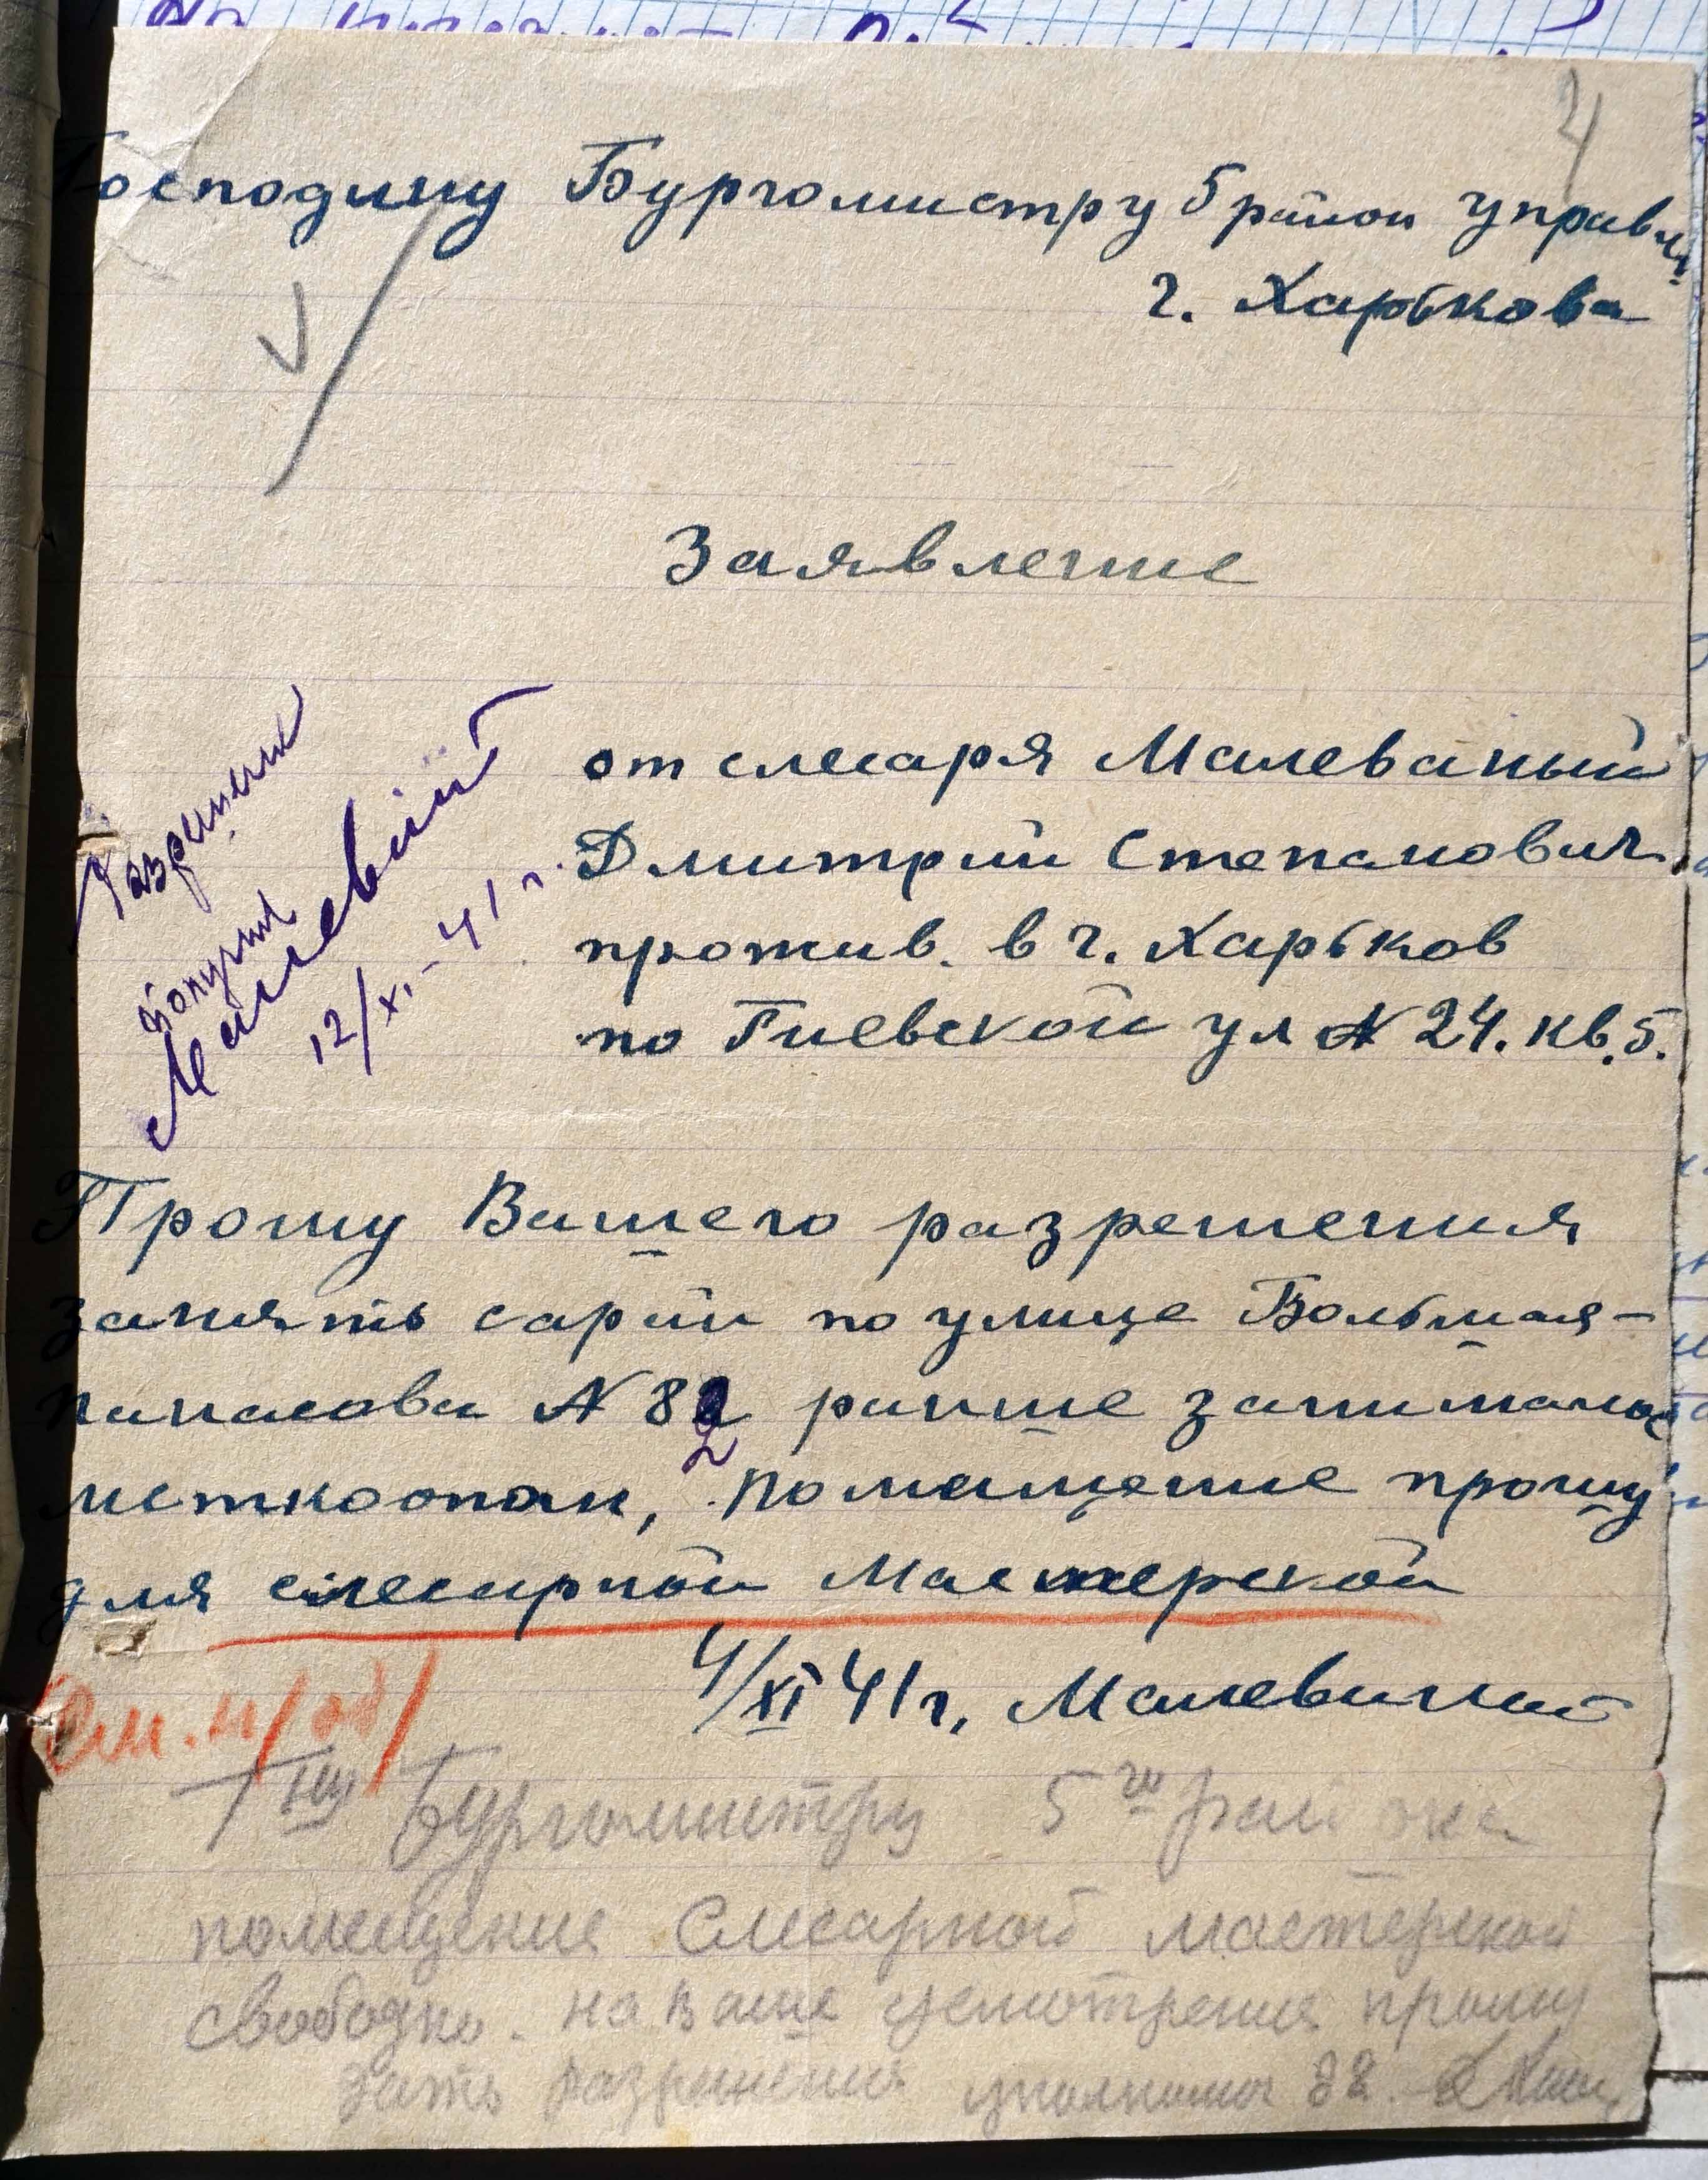 4
Господину Бургомистру 5 район управл.
г. Харькова
Заявление
от слесаря Малеваный
Дмитрий Степанович
прожив. в г. Харьков
по Гиевской ул № 24. кв. 5.
Разрешение
получил
Малеваний
12/XI - 41 г.
Прошу Вашего разрешения
занять сарай по улице Большая-
панасовка № 82 раньше занималось
меткоопан, помещение прошу
для слесарной мастерской
4/XI 41 г. Малеваний
См. н/об
Гну Бургомистру 5го района
помещение Слесарной мастерской
свободно. на ваше усмотрение прошу
дать разрешения уполномоч 82.